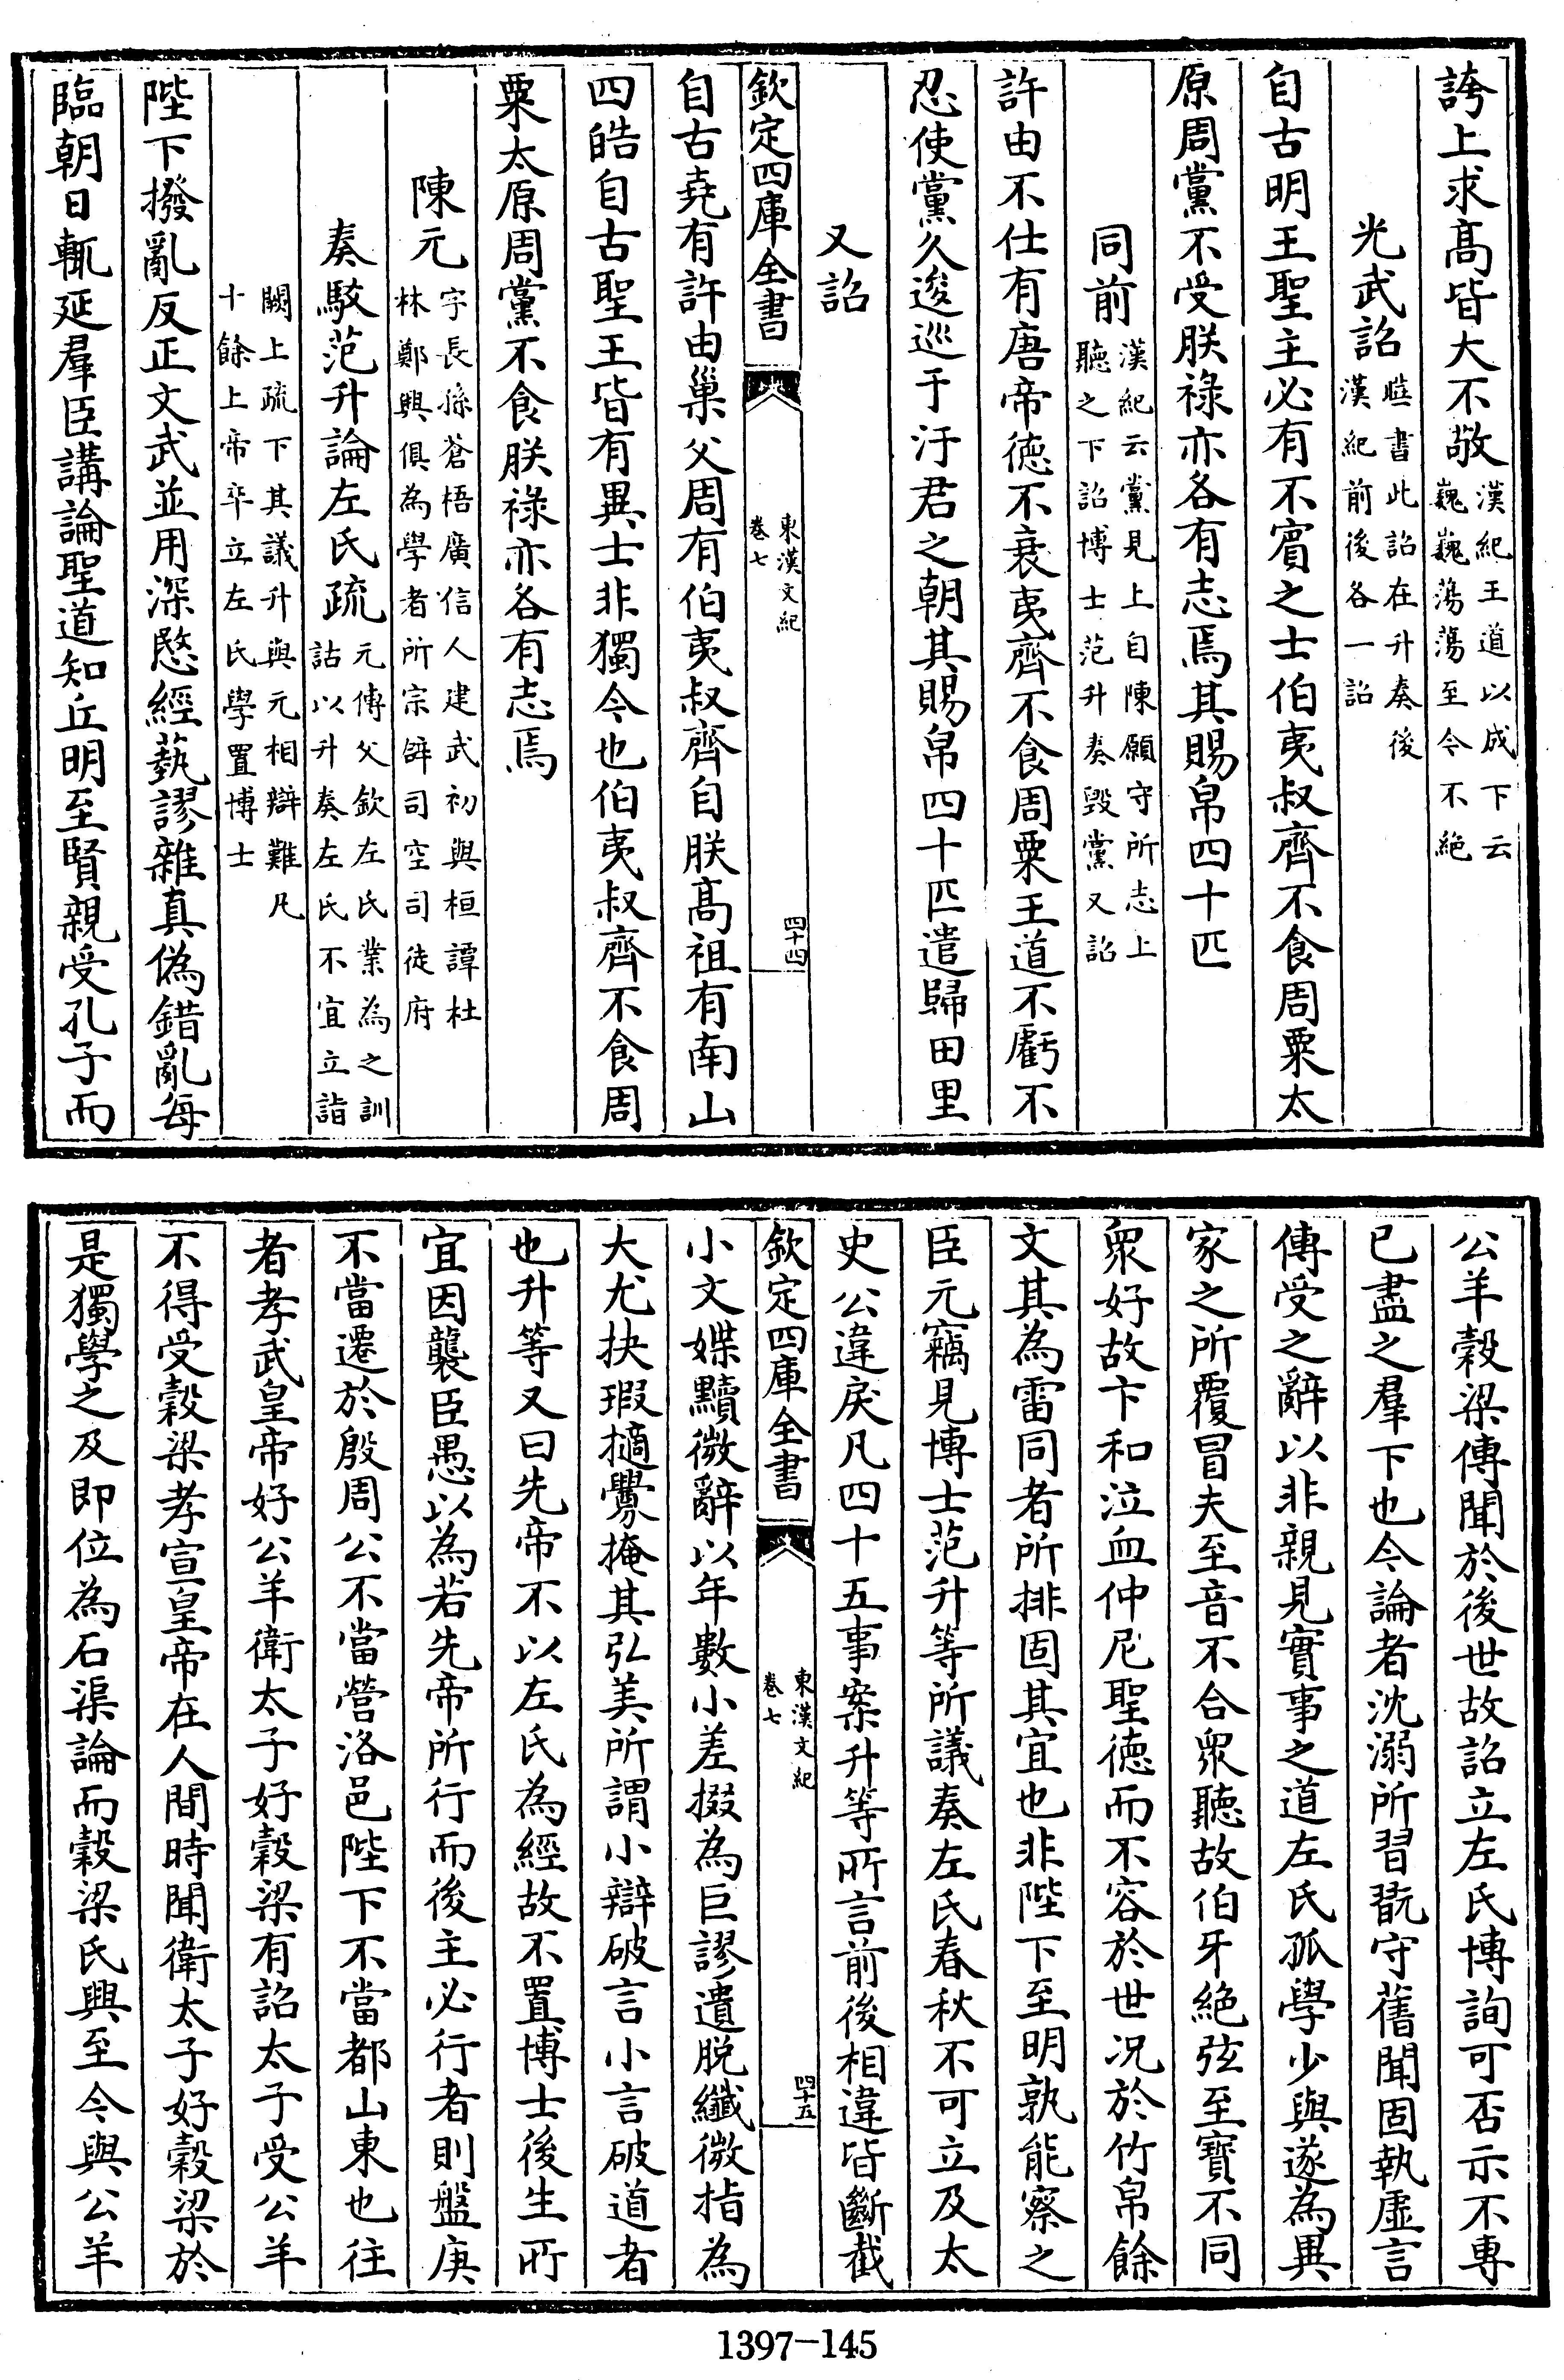 誇上求髙皆大不敬漢紀王道以成下云巍巍蕩蕩至今不絶
光武詔䇿書此詔在升奏後漢紀前後各一詔
自古明王聖主必有不賔之士伯夷叔齊不食周粟太
原周黨不受朕禄亦各有志焉其賜帛四十匹
同前漢紀云黨見上自陳願守所志上聽之下詔博士范升奏毁黨又詔
許由不仕有唐帝徳不衰夷齊不食周粟王道不虧不
忍使黨久逡巡于汙君之朝其賜帛四十匹遣歸田里
又詔
欽定四庫全書 東漢文紀 卷七 四十四
自古堯有許由巢父周有伯夷叔齊自朕髙祖有南山
四皓自古聖王皆有異士非獨今也伯夷叔齊不食周
粟太原周黨不食朕禄亦各有志焉
陳元字長孫蒼梧廣信人建武初與桓譚杜林鄭興俱為學者所宗辟司空司徒府
奏駮范升論左氏疏元傳父欽左氏業為之訓詁以升奏左氏不宜立詣
闕上疏下其議升與元相辯難凡十餘上帝卒立左氏學置博士
陛下撥亂反正文武並用深愍經藝謬雜真偽錯亂每
臨朝日輒延羣臣講論聖道知丘明至賢親受孔子而
公羊榖梁傳聞於後世故詔立左氏博詢可否示不專
已盡之羣下也今論者沈溺所習翫守舊聞固執虚言
傳受之辭以非親見實事之道左氏孤學少與遂為異
家之所覆冒夫至音不合衆聽故伯牙絶弦至寶不同
衆好故卞和泣血仲尼聖徳而不容於世况於竹帛餘
文其為雷同者所排固其宜也非陛下至明孰能察之
臣元竊見博士范升等所議奏左氏春秋不可立及太
史公違戾凡四十五事案升等所言前後相違皆斷截
欽定四庫全書 東漢文紀 卷七 四十五
小文媟黷微辭以年數小差掇為巨謬遺脱纎微指為
大尤抉瑕擿釁掩其弘美所謂小辯破言小言破道者
也升等又曰先帝不以左氏為經故不置博士後生所
宜因襲臣愚以為若先帝所行而後主必行者則盤庚
不當遷於殷周公不當營洛邑陛下不當都山東也往
者孝武皇帝好公羊衛太子好榖梁有詔太子受公羊
不得受榖梁孝宣皇帝在人間時聞衛太子好榖梁於
是獨學之及即位為石渠論而榖梁氏興至今與公羊
1397-145